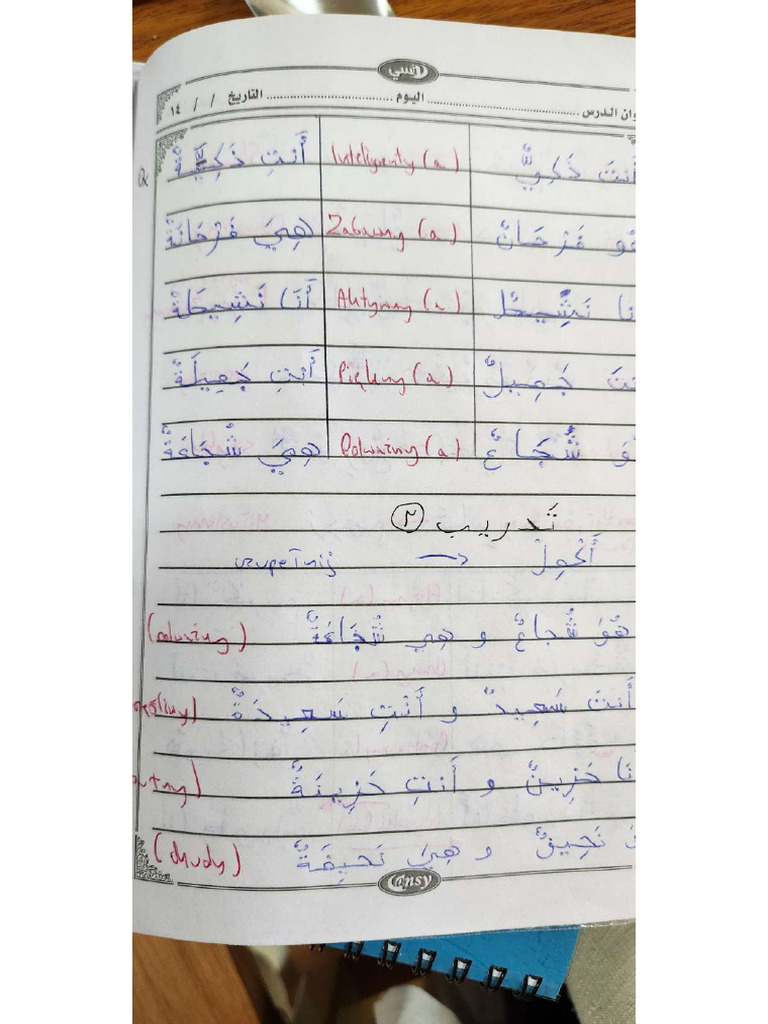 انسي
وان الدرس اليوم التاريخ / / ١٤
أَنتَ ذَكِيٌّ Inteligentny (a) أَنْتِ ذَكِيَّةٌ
هُو فَرْحَانٌ Zabawny (a) هِيَ فَرْحَانَةٌ
نا نَشِيطٌ Aktywny (a) أَنَا نَشِيطَةٌ
نتَ جَمِيلٌ Piękny (a) أَنْتِ جَمِيلَةٌ
وَ شُجَاعٌ Odważny (a) هِيَ شُجَاعَةٌ
تَدريب ٢
uzupełnij
هُوَ شُجاعٌ و هِي شُجَاعَةٌ (odważny)
أَنتَ سَعِيدٌ و أَنْتِ سَعِيدَةٌ
نَا حَزِينٌ و أَنتِ حَزِينَةٌ
نَحِيفٌ و هِيَ نَحِيفَةٌ (chudy)
Cansy